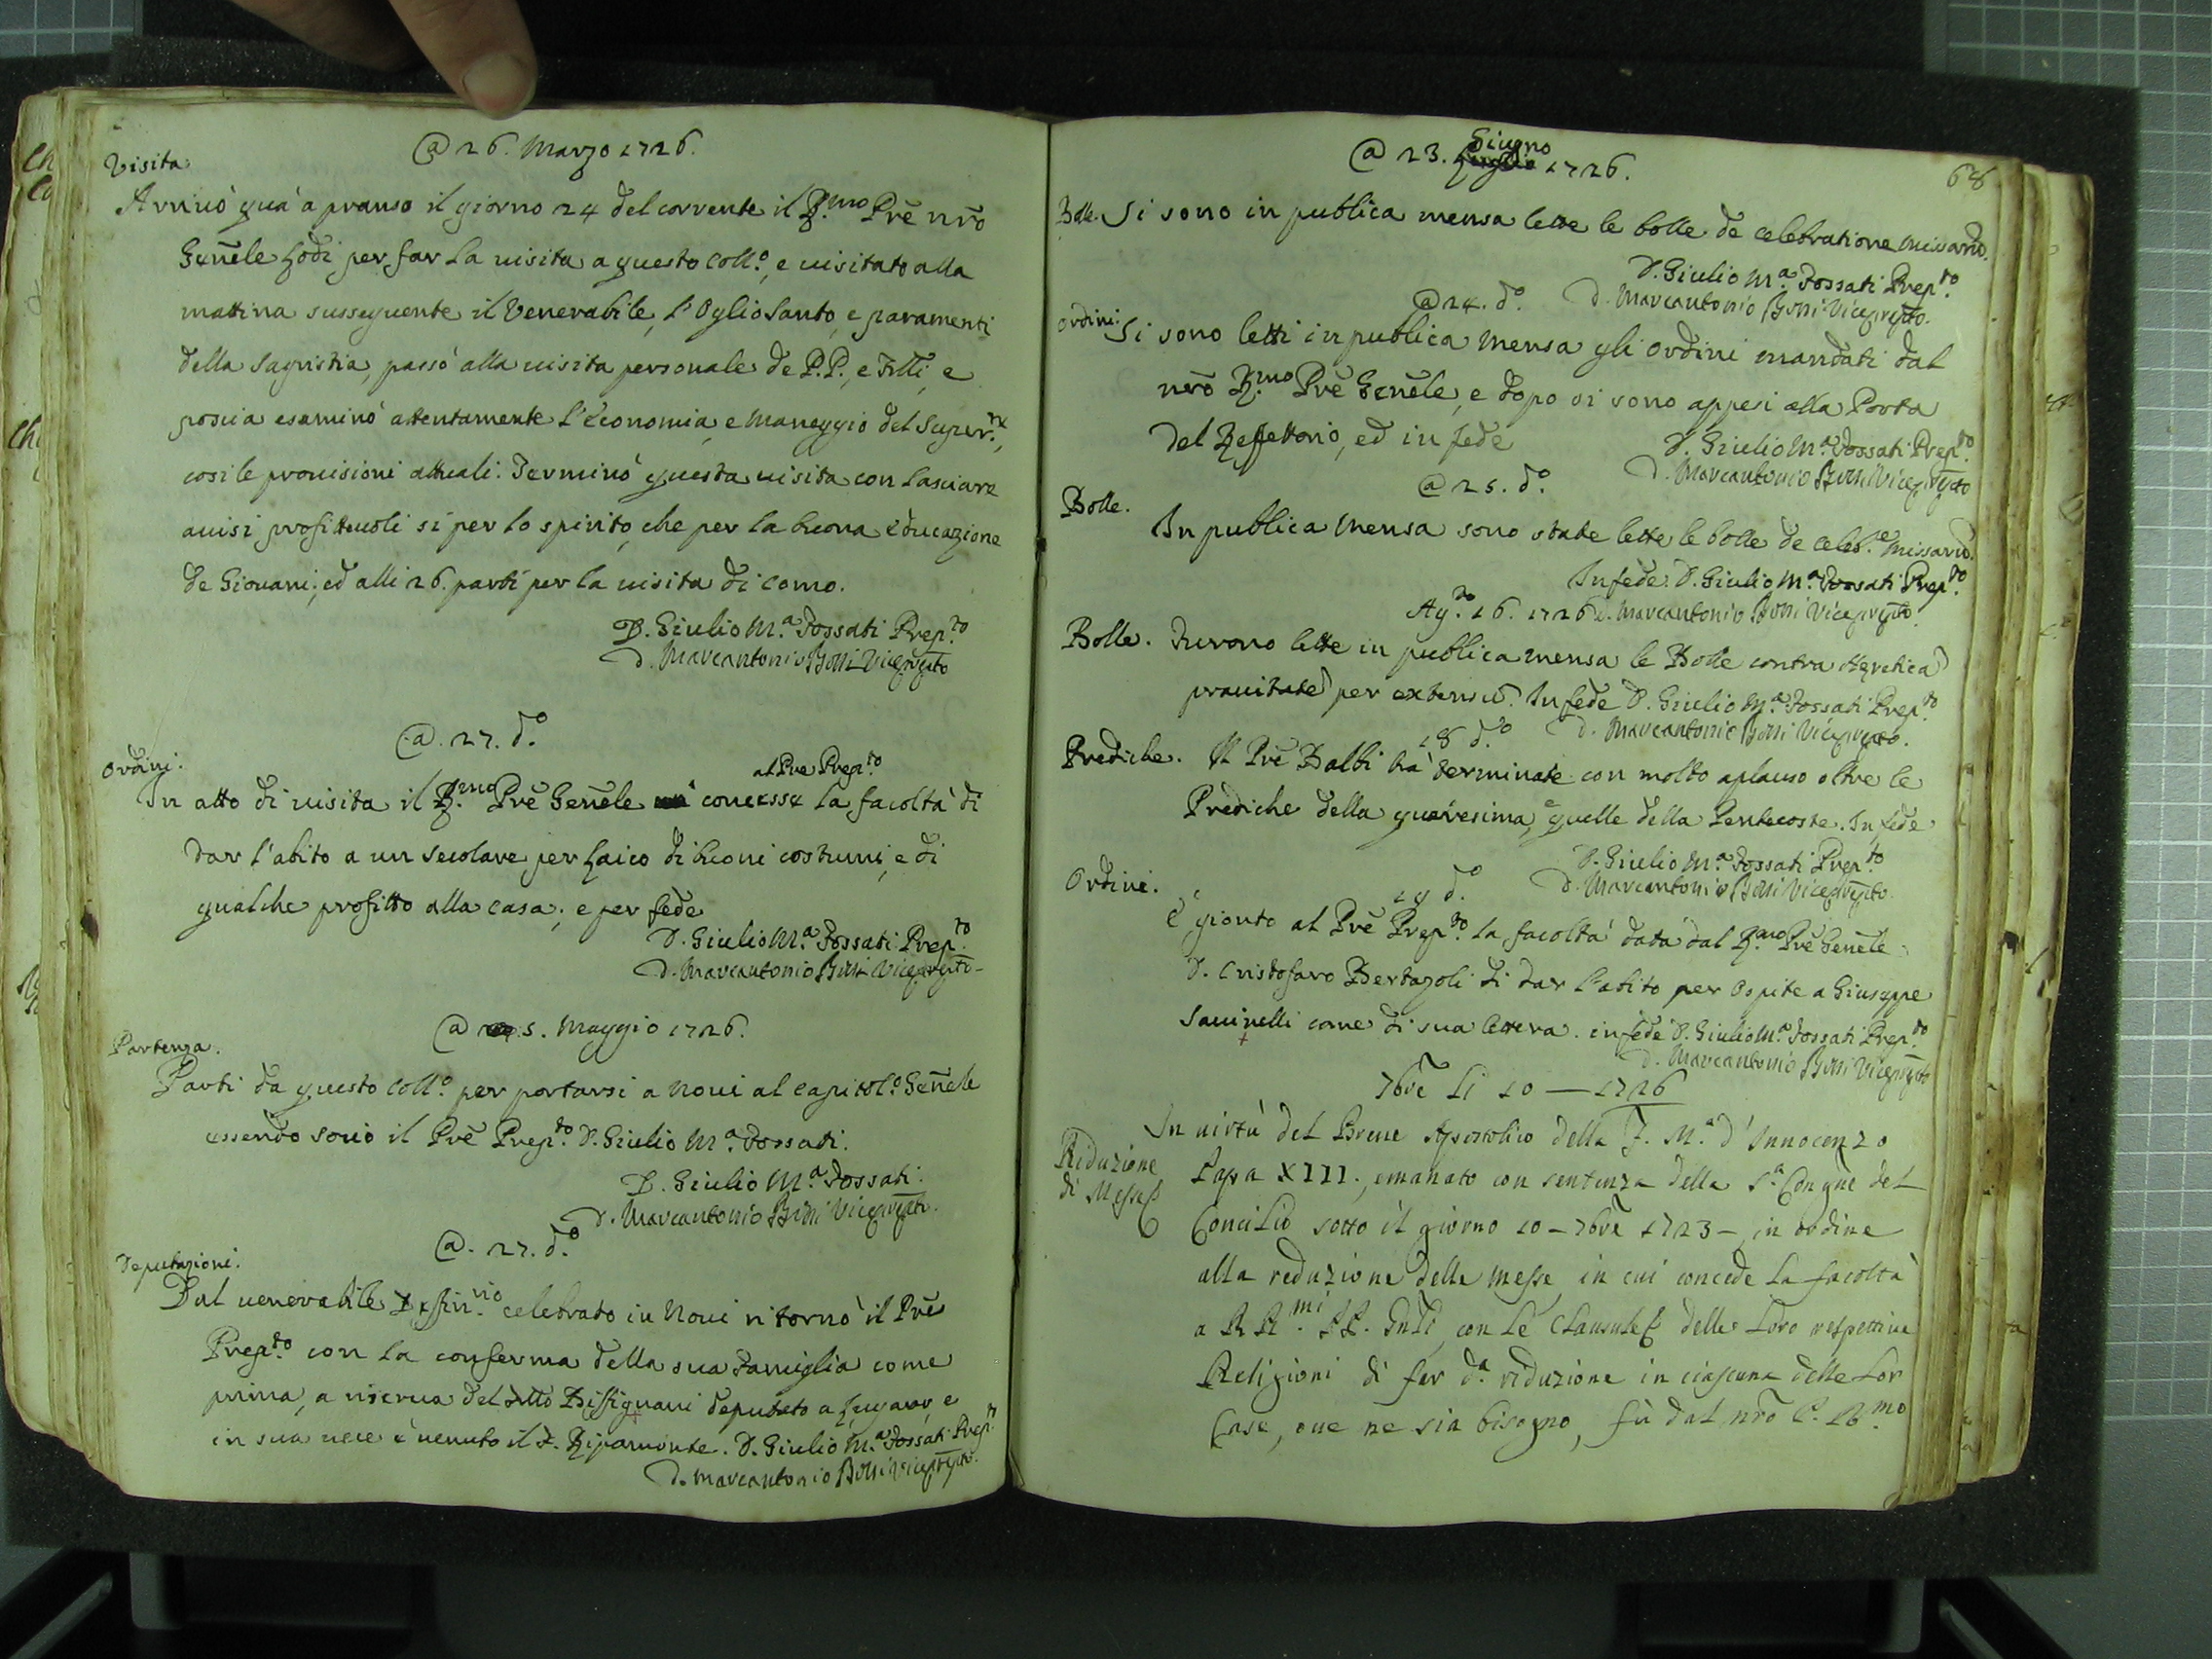 @ 26. Marzo 1726.
Visita.
Arriuò quà à pranso il giorno 24 del corrente il R.mo Prẽ nr̃o
Gen̄ele Lodi per far la uisita a questo Coll.o, e uisitato alla
mattina sussequente il Venerabile, l'Oglio Santo, e paramenti
della Sagristia, passò alla uisita personale de P.P., e Flli, e
poscia esaminò attentamente l'economia, e maneggio del Super.re,
cosi le prouisioni attuali. Terminò questa uisita con lasciare
auisi profitteuoli si per lo spirito, che per la buona educazione
de Giouani; ed alli 26. partì per la uisita di Como.
D. Giulio M.a Fossati Prep.to
D. Marcantonio Bossi Viceprep̄to
@. 27. d.o
Ordini.
al Prẽ Prep.to
In atto di uisita il R.mo Prẽ Gen̄ele concesse la facoltà di
dar l'abito a un secolare per Laico di buoni costumi, e di
qualche profitto alla casa; e per fede
D. Giulio M.a Fossati Prep.to
D. Marcantonio Bossi Viceprep̄to
@ 5. Maggio 1726.
Partenza.
Parti da questo Coll.o per portarsi a Noui al Capitol.o Gen̄ele
essendo Socio il Prẽ Prep.to D. Giulio M.a Fossati.
D. Giulio M.a Fossati.
D. Marcantonio Bossi Viceprep̄to.
@. 27. d.o
Deputazioni.
Dal uenerabile Deffin.rio celebrato in Noui ritornò il Prẽ
Prep.to con la conferma della sua Famiglia come
prima, a riserua del Fllo Biffignani deputato a Lugano, e
in sua uece è uenuto il F. Ripamonte. D. Giulio M.a Fossati Prep.to
D. Marcantonio Bossi Viceprep̄to.
68
@ 23. Giugno 1726.
Bolle. Si sono in publica mensa lette le bolle de celebratione missarũ.
D. Giulio M.a Fossati Prep.to
@ 24. d.o D. Marcantonio Bossi Viceprep̄to.
Ordini. Si sono letti in publica mensa gli ordini mandati dal
nr̃o R.mo Prẽ Gen̄ele, e dopo si sono appesi alla Porta
del Reffettorio, ed in fede D. Giulio M.a Fossati Prep.to
@ 25. d.o D. Marcantonio Bossi Viceprep̄to
Bolle.
In publica mensa sono state lette le bolle de celeb.e missarũ.
In fede D. Giulio M.a Fossati Prep.to
Ag.to 16. 1726 D. Marcantonio Bossi Viceprep̄to.
Bolle. Furono lette in publica mensa le Bolle contra Hęretica
prauitate per extensũ. In fede D. Giulio M.a Fossati Prep.to
18 d.o D. Marcantonio Bossi Viceprep̄to.
Prediche. Il Prẽ Balbi hà terminate con molto aplauso oltre le
Prediche della quaresima, e quelle della Pentecoste. In fede
D. Giulio M.a Fossati Prep.to
19 d.o D. Marcantonio Bossi Viceprep̄to.
Ordini.
È gionto al Prẽ Prep.to la facoltà data dal R.mo Prẽ Gen̄ele
D. Cristofaro Bertazoli di dar l'abito per Ospite a Giuseppe
Sauinelli come di sua lettera. in fede D. Giulio M.a Fossati Prep.to
D. Marcantonio Bossi Viceprep̄to
7br̃e li 10 — 1726
Riduzione
di Messe
In uirtù del Breue Apostolico della F. M.a d'Innocenzo
Papa XIII., emanato con sentenza della S.a Congnẽ del
Concilio sotto il giorno 10 - 7br̃e 1723 - in ordine
alla reduzione delle Messe in cui concede la facoltà
a RR.mi PP. Gñli, con le Clausule delle loro respettiue
Religioni di far d.a reduzione in ciascuna delle lor
Case, oue ne sia bisogno, fù dal nr̃o P. R.mo